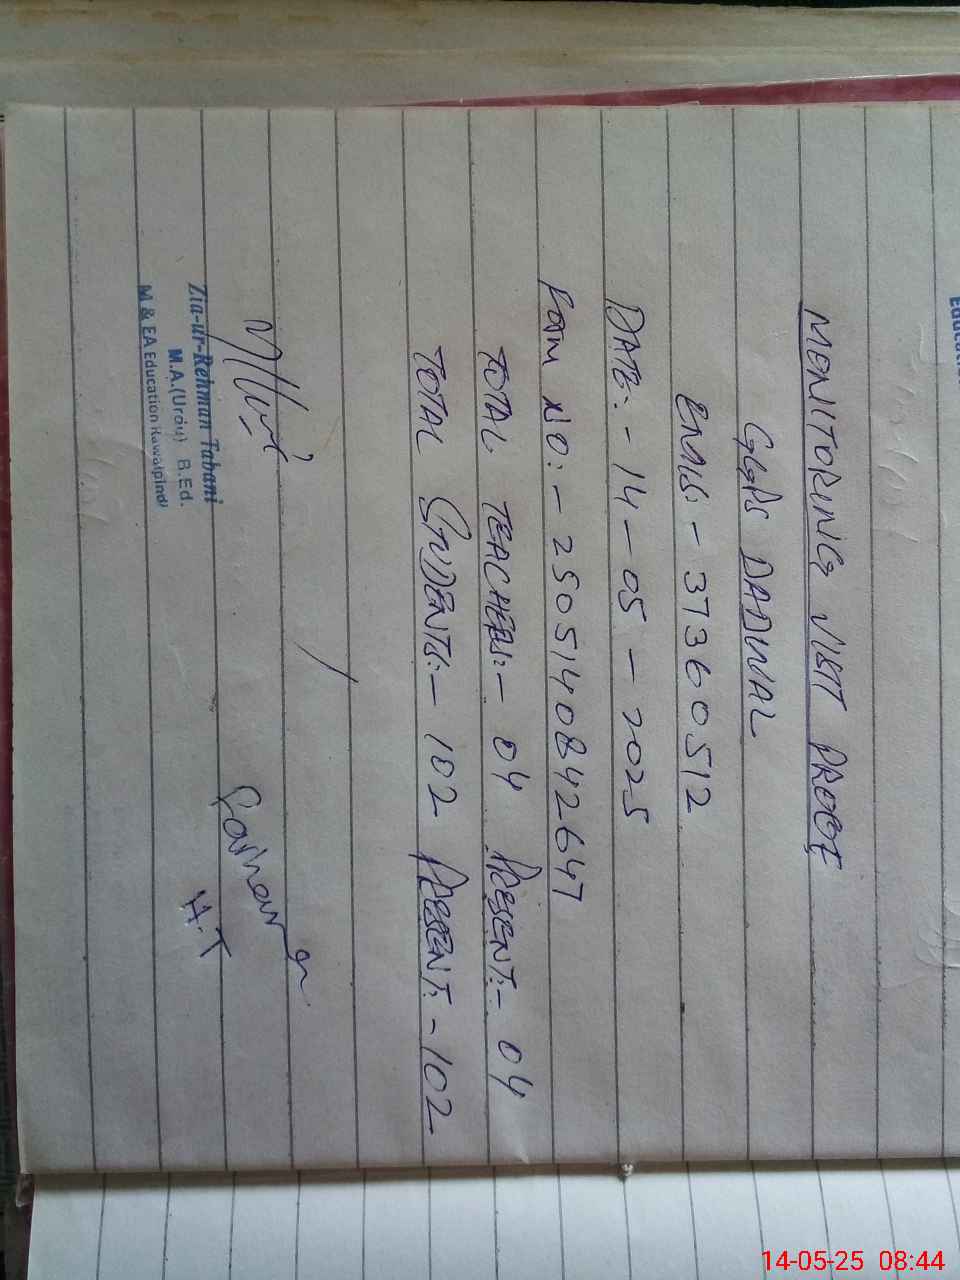 MONITORING VISIT PROOF
GGPS DADWAL
EMIS:- 37360512
DATE:- 14-05-2025
FORM NO:- 250514084264​7
TOTAL TEACHERS:- 04 PRESENT:- 04
TOTAL STUDENTS:- 102 PRESENT:- 102
H.T
Zia-ur-Rehman Tabani
M.A.(Urdu) B.Ed.
M & EA Education Rawalpindi
14-05-25 08:44